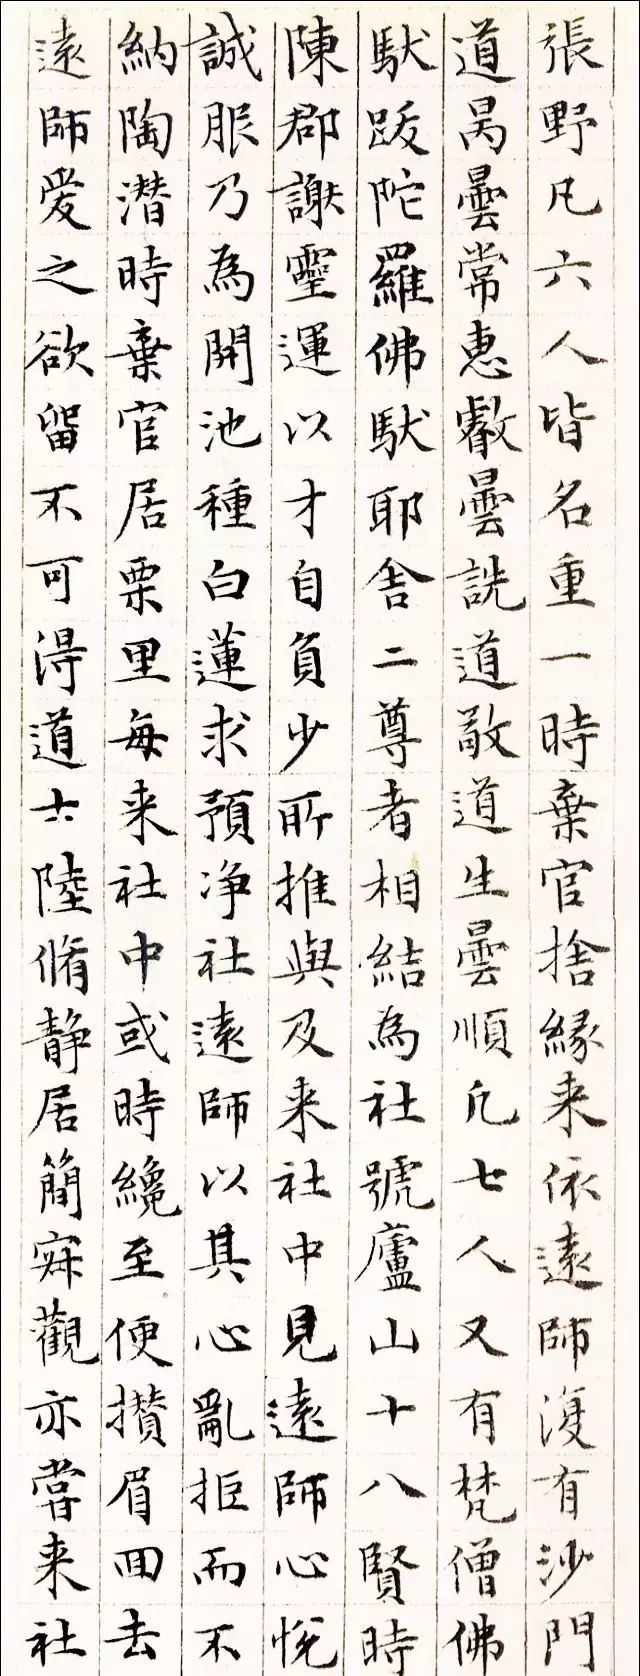 張野凡六人皆名重一時棄官捨緣来依遠師復有沙門
道昺曇常惠叡曇詵道敬道生曇順凡七人又有梵僧佛
馱跋陀羅佛馱耶舍二尊者相結為社號廬山十八賢時
陳郡謝靈運以才自負少所推與及来社中見遠師心悅
誠服乃為開池種白蓮求預净社遠師以其心亂拒而不
納陶潛時棄官居栗里每来社中或時纔至便攅眉回去
遠師愛之欲留不可得道士陸脩静居簡寂觀亦嘗来社